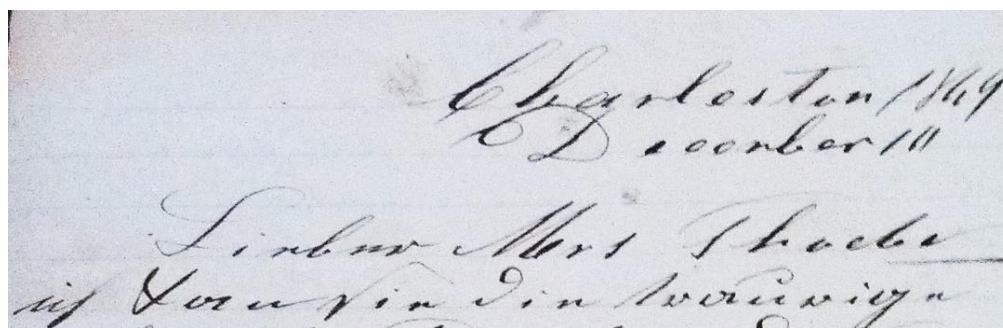 Charleston 1869
December 10
Lieber Mrs Thoebe
ich kan sie die traurige